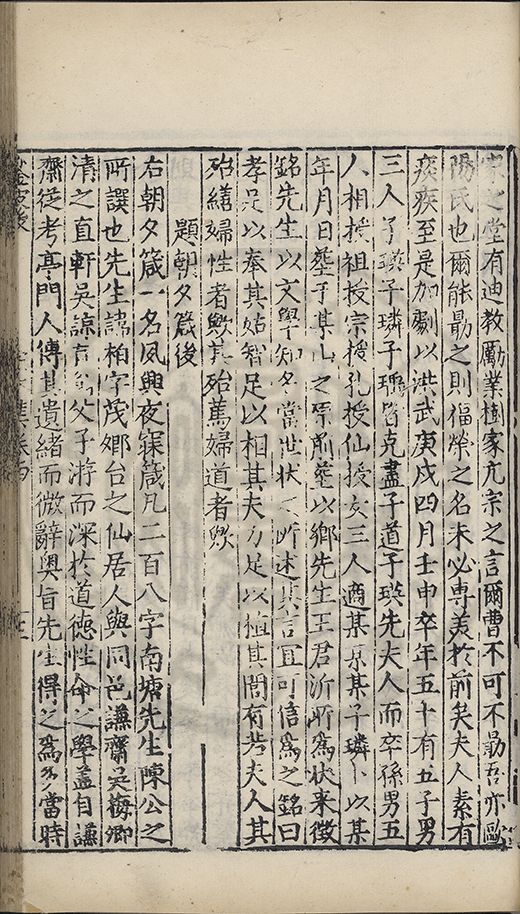 家之堂有迪教勵業樹家亢宗之言爾曹不可不勗吾亦歐
陽氏也爾能勗之則偪榮之名未必專美於前矣夫人素有
痰疾至是加劇以洪武庚戌四月壬申卒年五十有五子男
三人子瑛子璘子瑀皆克盡子道子瑛先夫人而卒孫男五
人相授祖授宗授孔授仙授女三人適某某某子璘卜以某
年月日塟于某山之原前塟以鄉先生王君沂所為狀来徵
銘先生以文學知名當世狀之所述其言宜可信為之銘曰
孝足以奉其姑智足以相其夫力足以植其閭有若夫人其
殆繕婦性者歟其殆篤婦道者歟
題朝夕箴後
右朝夕箴一名夙興夜寐箴凡二百八字南塘先生陳公之
所譔也先生諱柏字茂卿台之仙居人與同邑謙齋吳梅卿
清之直軒吳諒直翁父子游而深於道德性命之學蓋自謙
齋從考亭門人傳其遺緒而微辭奧旨先生得之為多當時